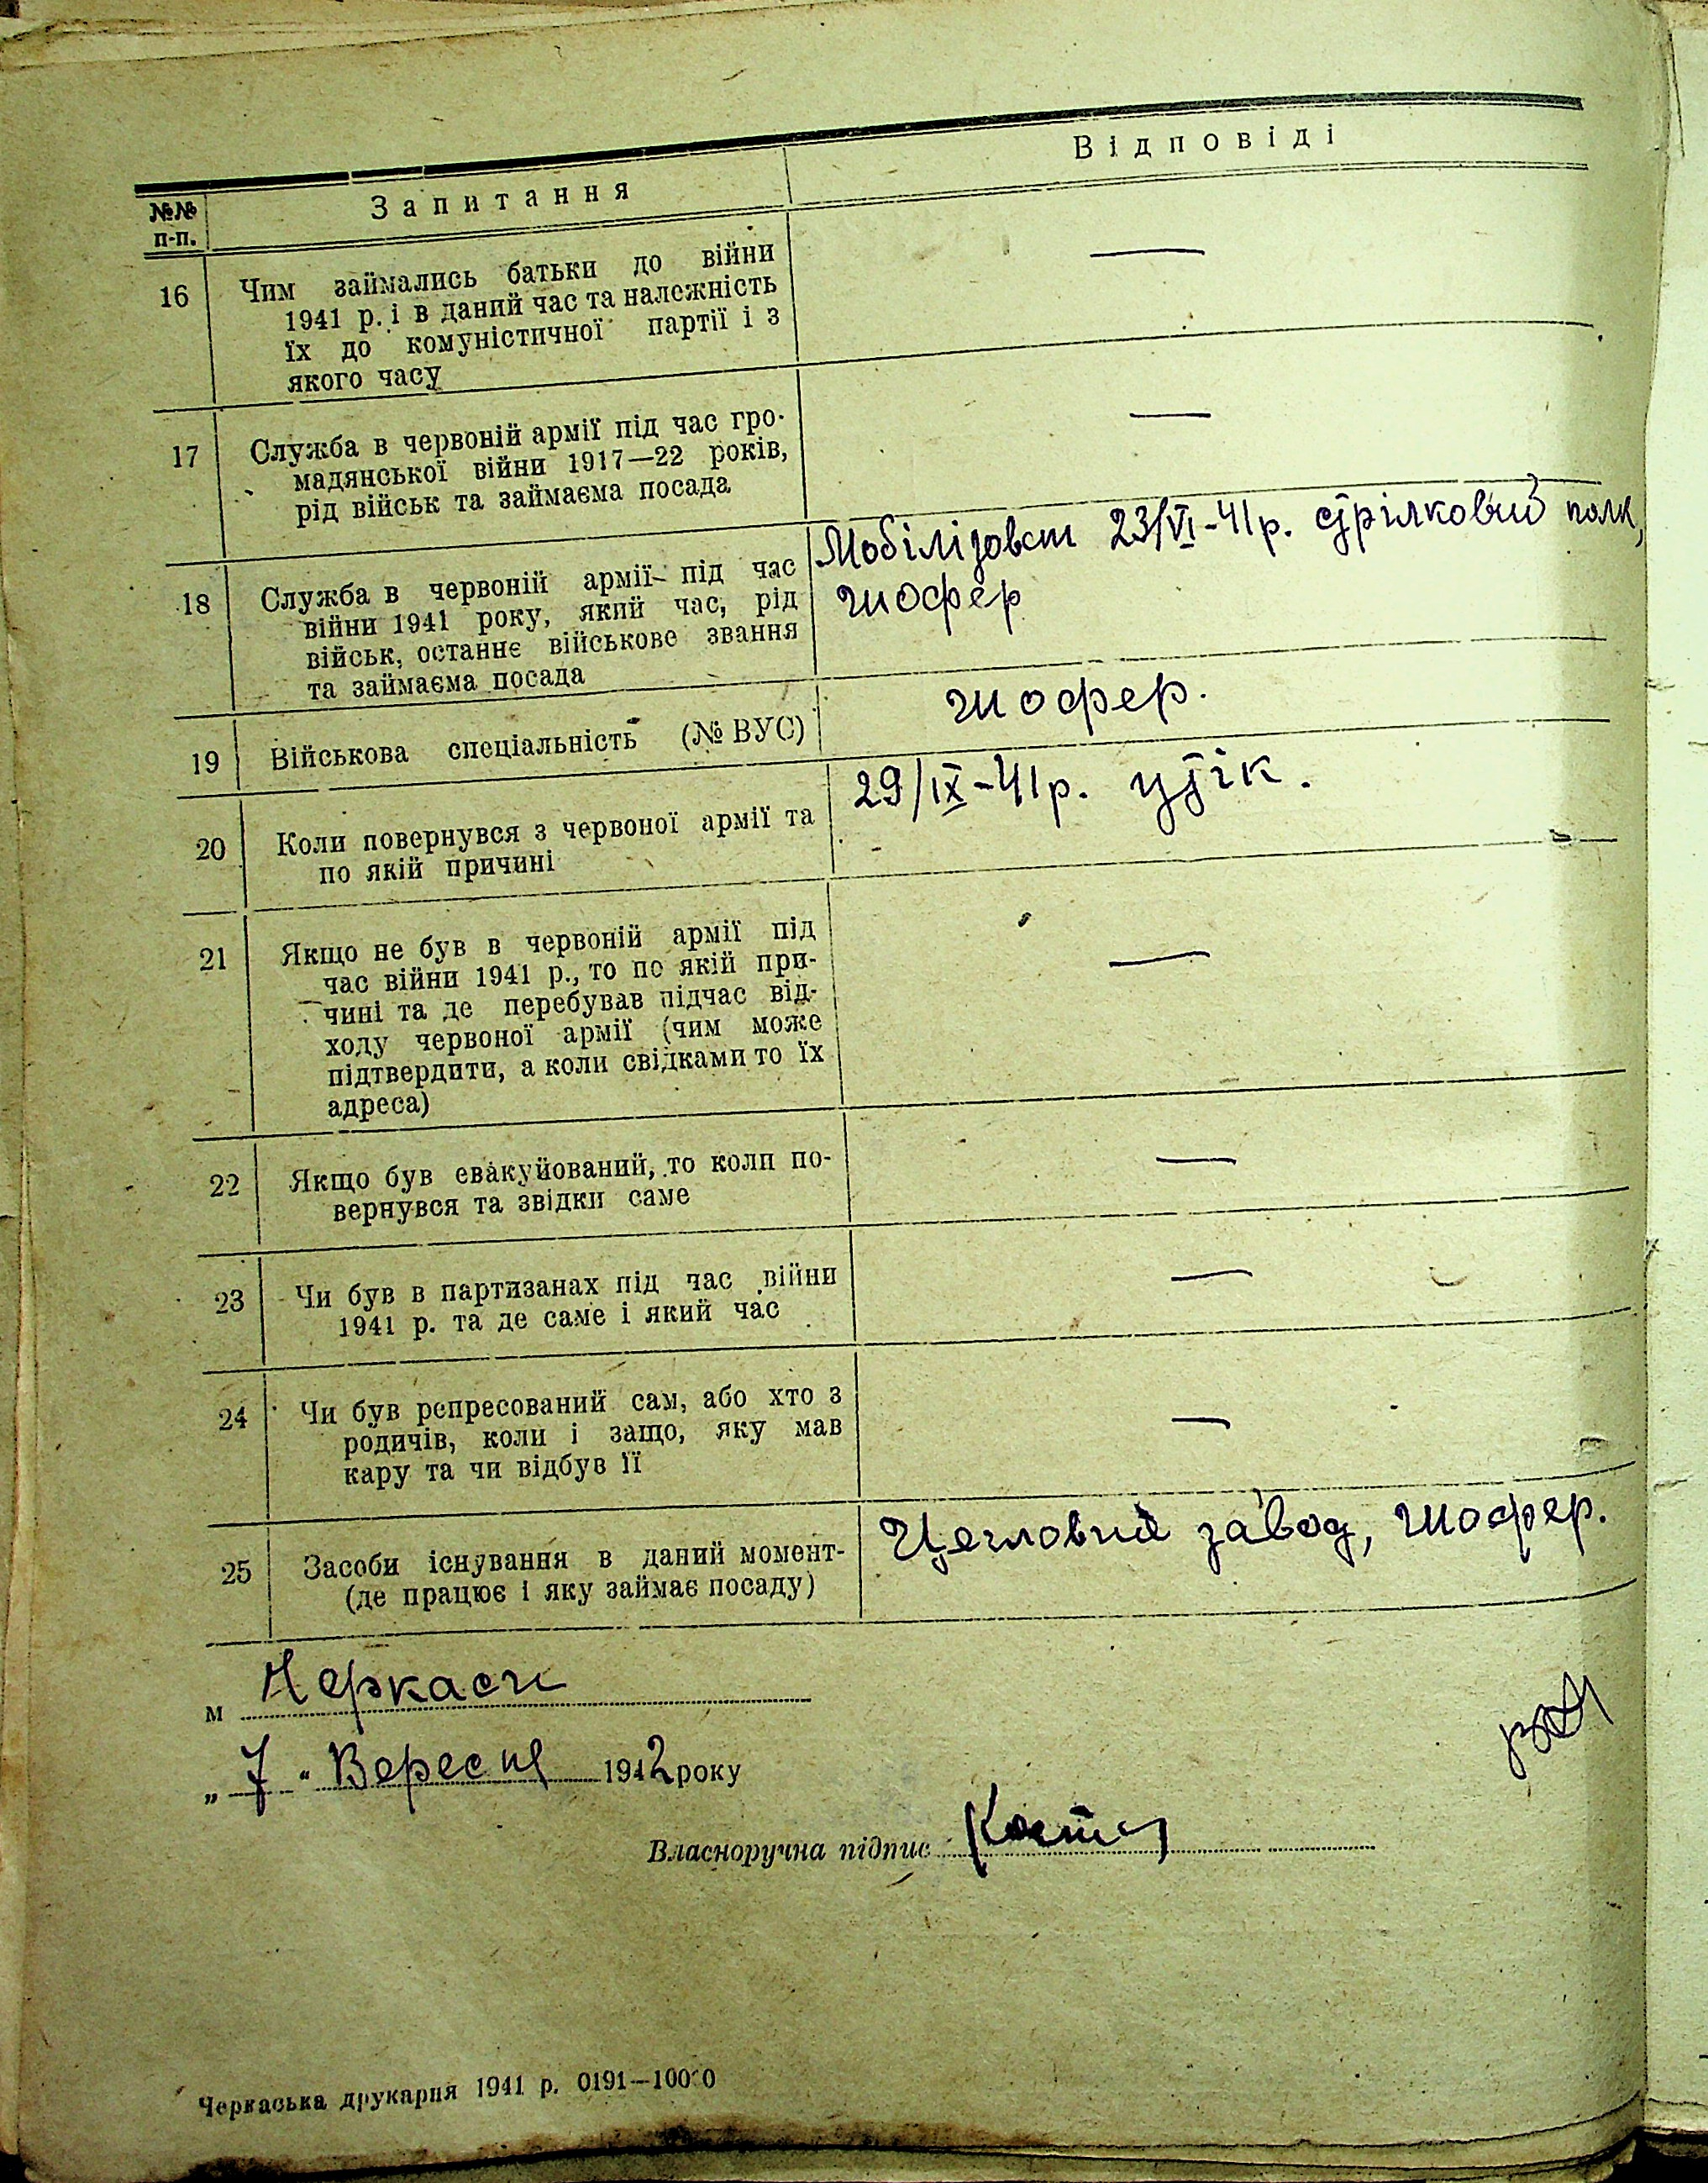 №№ п-п.
Запитання
Відповіді
16
Чим займались батьки до війни
1941 р. і в даний час та належність
їх до комуністичної партії і з
якого часу
—
17
Служба в червоній армії під час гро-
мадянської війни 1917—22 років,
рід військ та займаєма посада
—
18
Служба в червоній армії під час
війни 1941 року, який час, рід
військ, останнє військове звання
та займаєма посада
Мобілізован 23/VI-41р. стрілковий полк,
шофер
19
Військова спеціальність (№ ВУС)
шофер.
20
Коли повернувся з червоної армії та
по якій причині
29/IX-41р. утік.
21
Якщо не був в червоній армії під
час війни 1941 р., то по якій при-
чині та де перебував підчас від-
ходу червоної армії (чим може
підтвердити, а коли свідками то їх
адреса)
—
22
Якщо був евакуйований, то коли по-
вернувся та звідки саме
—
23
Чи був в партизанах під час війни
1941 р. та де саме і який час
—
24
Чи був репресований сам, або хто з
родичів, коли і защо, яку мав
кару та чи відбув її
—
25
Засоби існування в даний момент-
(де працює і яку займає посаду)
Цегловий завод, шофер.
м Черкаси
„ 7 “ Вересня 1942 року
Власноручна підпис
Черкаська друкарня 1941 р. 0191—10000